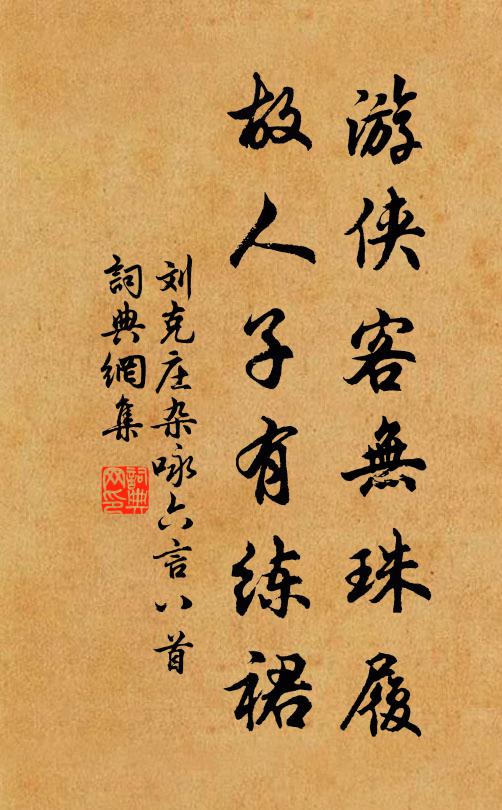 游侠客無珠履
故人子有练裙
刘克庄杂咏六言八首
詞典網集
詞典网印